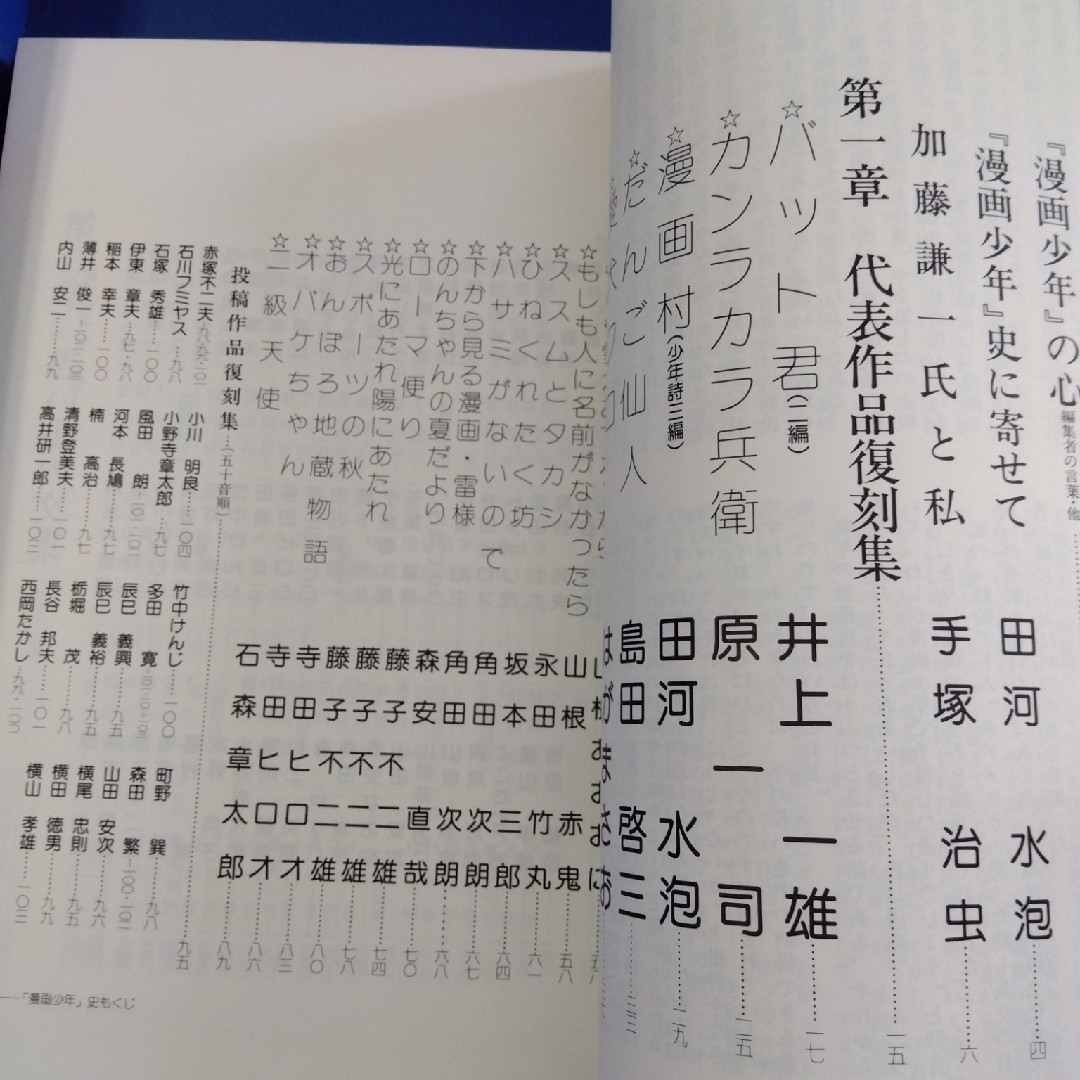 『漫画少年』の心 編集者の言葉・他
『漫画少年』史に寄せて 田河 水泡 四
加藤謙一氏と私 手塚 治虫 六
第一章 代表作品復刻集 一五
☆バット君(二編) 井上 一雄 一七
☆カンラカラ兵衛 原 一司 二五
☆漫画村(少年詩三編) 田河 水泡 二九
☆だんご仙人 島田 啓三 三三
はがまさお
☆もしも人に名前がなかったら 山根 赤鬼 五八
☆ススムとタカシ 永田 竹丸 六一
☆ひねくれたく坊 坂本 三郎 六四
☆ハサミがないので 角田 次朗 六七
☆下から見る漫画・雷様 角田 次朗 六八
☆のんちゃんの夏だより 森安 直哉 七〇
☆ローマ便り 藤子 不二雄 七四
☆光にあたれ陽にあたれ 藤子 不二雄 七八
☆スポーツの秋 藤子 不二雄 八〇
☆おんぼろ地蔵物語 寺田 ヒロオ 八三
☆オバケちゃん 寺田 ヒロオ 八六
☆二級天使 石森 章太郎 八九
投稿作品復刻集(五十音順) 九五
赤塚不二夫
石川フミヤス 九八
石塚 秀雄 一〇〇
伊東 章夫 九七・九八
稲本 幸夫 一〇〇
薄井 俊一
内山 安二 九九
小川 明良 一〇四
小野寺章太郎 九七
風田 朗
河本 長鳩 九七
楠 高治 九七
清野登美夫 一〇一
高井研一郎 一〇三
竹中けんじ 一〇〇
多田 寛
辰巳 義興 九五
辰巳 義裕 九五
栃堀 茂 九八
長谷 邦夫 一〇一
西岡たかし 九九・一〇〇
町野 巽 九八
森田 繁 一〇〇・一〇二
山田 安次 九六
横尾 忠則 九五
横田 徳男 九九
横山 孝雄 一〇三
「漫画少年」史もくじ